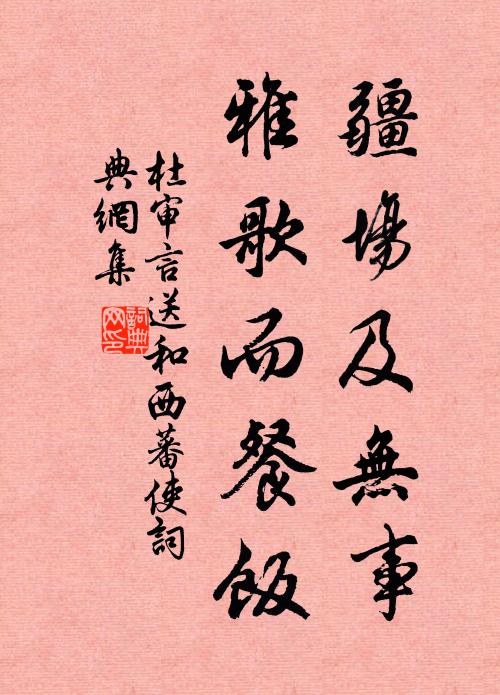 疆場及無事
雅歌而餐飯
杜審言送和西蕃使詞
典網集
詞典
网印